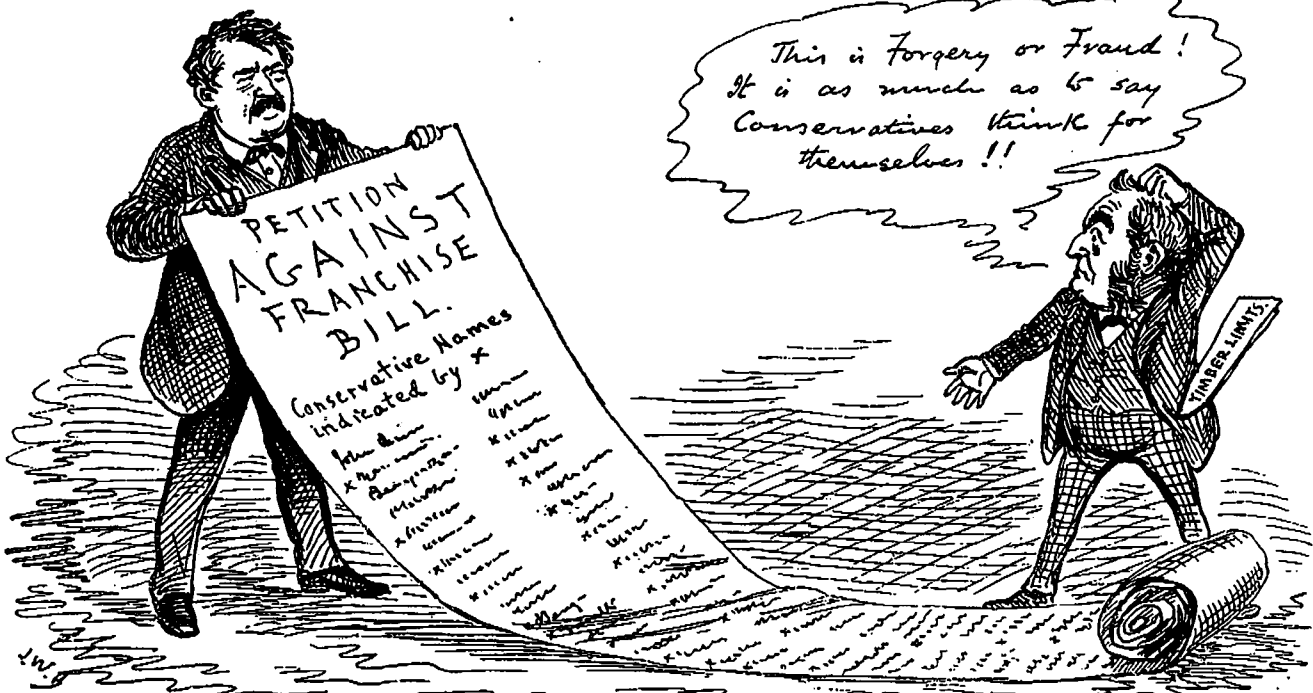 This is Forgery or Fraud!
It is as much as to say
Conservatives think for
themselves!!
PETITION
AGAINST
FRANCHISE
BILL.
Conservative Names
indicated by x
John
TIMBER LIMITS.
J.W.